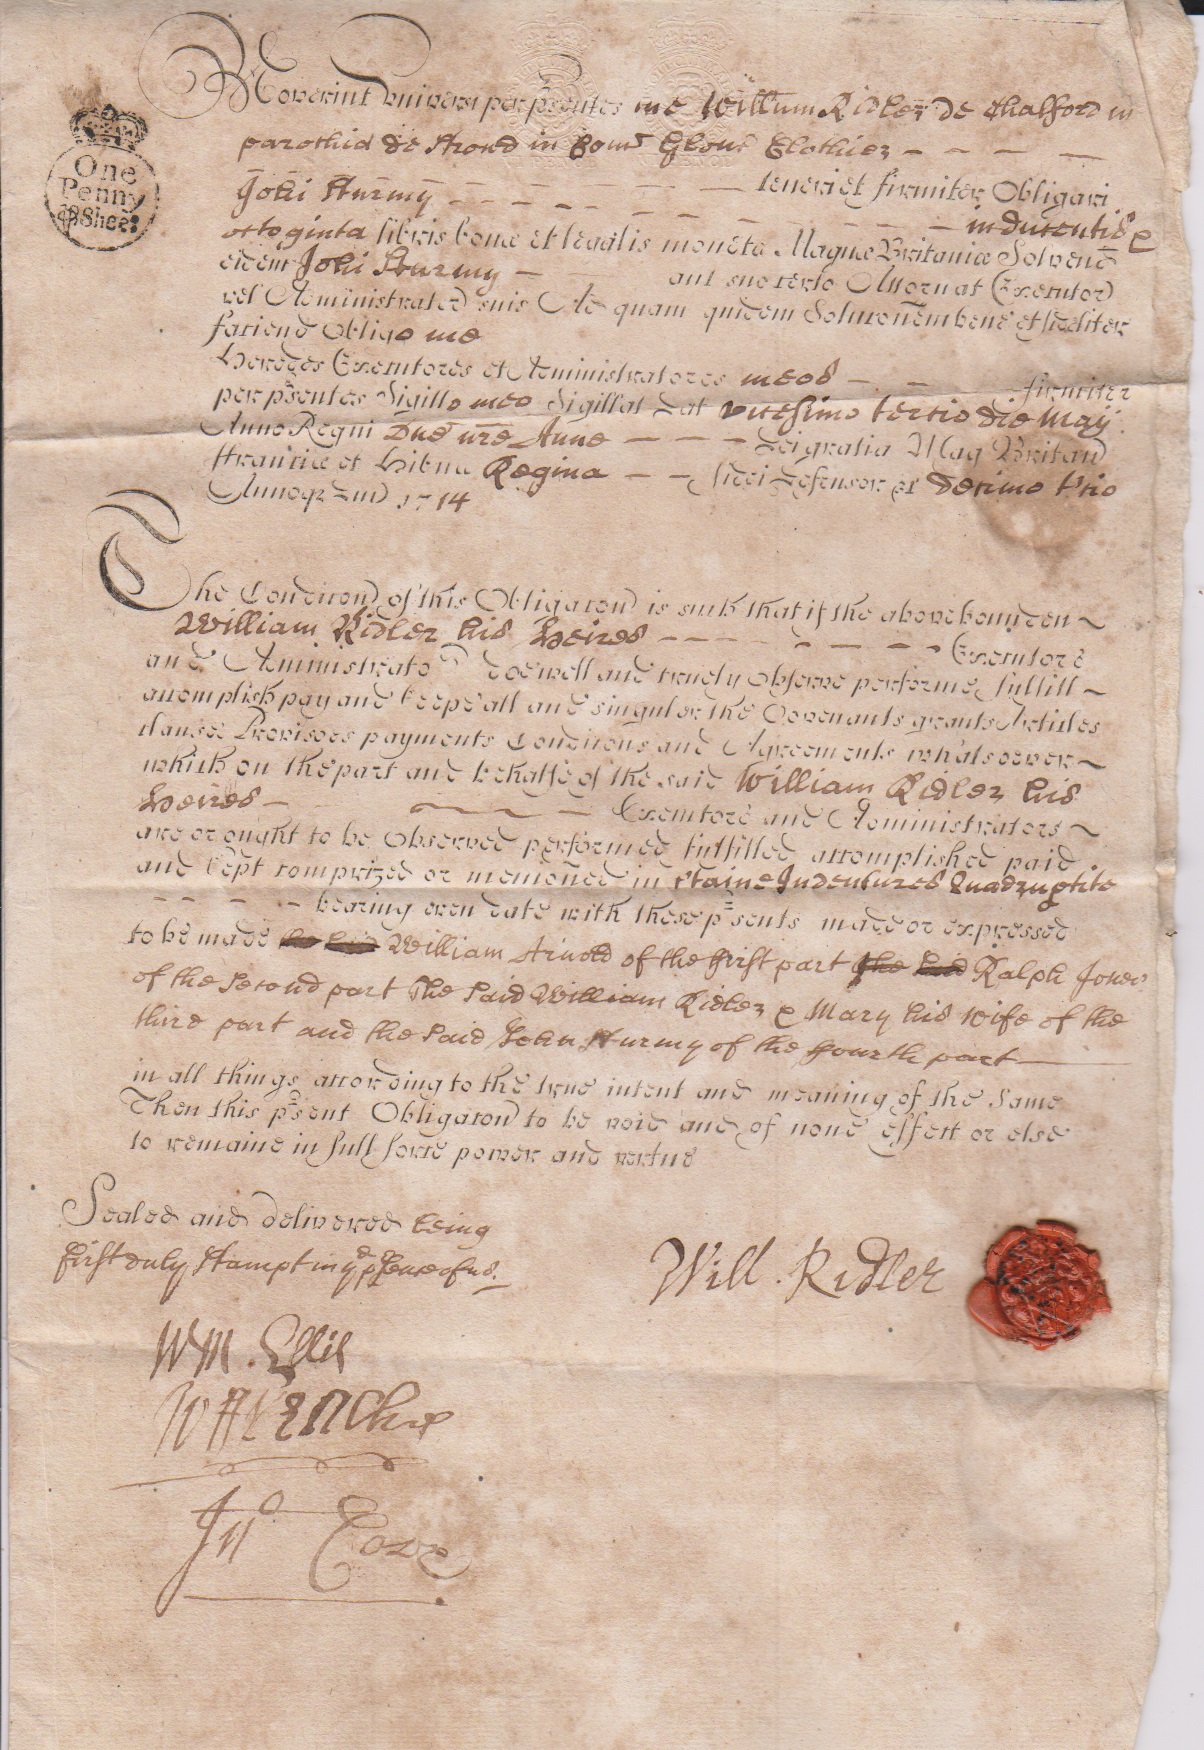 One
Penny
p Sheet
Noverint Universi per p'sentes me Willum Ridler de Chalford in
parochia de Stroud in Com Glouc Clothier
teneri et firmiter Obligari
Johi Sturmy
in ducentis &
octoginta libris bonæ et legalis monetæ Magnæ Britaniæ Solvend
eidem Johi Sturmy aut suo certo Attornat Executor
vel Administrator suis Ad quam quidem Soluconem bene et fideliter
faciend Obligo me
Heredes Executores et Administratores meos firmiter
per p'sentes Sigillo meo Sigillat Dat vicesimo tertio die Maij
Anno Regni Dne nre Anne Dei gratia Mag Britan
ffranciæ et Hibniæ Regina fidei Defensor &c decimo t'tio
Annoq Dni 1714
The Condicon of this Obligacon is such that if the above bounden
William Ridler his heires Executors
and Administrators doe well and truely observe performe fullfill
accomplish pay and keepe all and singuler the Covenants grants Articles
clauses Provisoes payments Condicons and Agreements whatsoever
which on the part and behalfe of the said William Ridler his
heires Executors and Administrators
are or ought to be Observed performed fulfilled accomplished paid
and kept comprized or menconed in c'taine Indentures Quadruptite
bearing even date with these p'sents made or expressed
to be made William Arnold of the first part Ralph Jones
of the Second part The said William Ridler & Mary his wife of the
third part and the said John Sturmy of the fourth part
in all things according to the true intent and meaning of the same
Then this p'sent Obligacon to be void and of none effect or else
to remaine in full force power and vertue
Sealed and delivered being
first duly Stampt in ye p'sence of us.
Will. Ridler
WM. Ellis
Jno Coxe